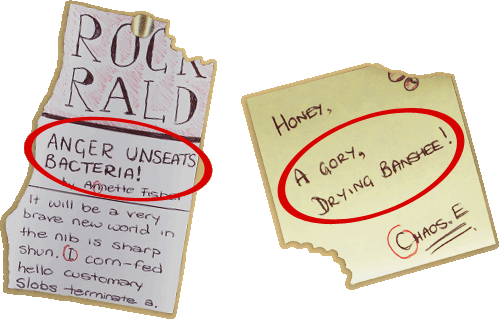 ROCK
RALD
ANGER UNSEATS
BACTERIA!
by Annette Fisher
It will be a very
brave new world in
the nib is sharp
shun. I corn-fed
hello customary
Slobs terminate a.
Honey,
A GORY,
DRYING BANSHEE!
CHAOS.E